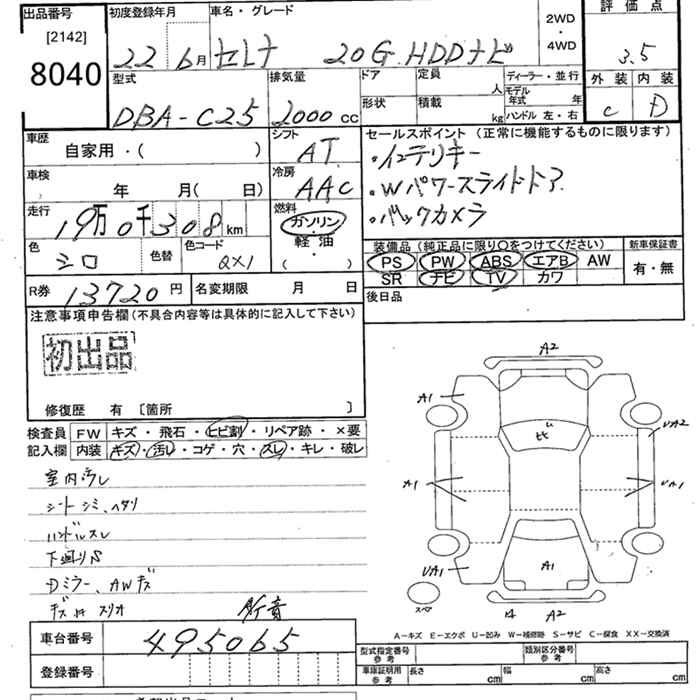 出品番号
[2142]
8040
初度登録年月
22年6月
車名・グレード
セレナ 20G HDDナビ
2WD
・
4WD
評価点
3.5
外装 内装
C D
型式
DBA-C25
排気量
2000 CC
ドア
形状
定員
人
積載
kg
ディーラー・並行
モデル年式 年
ハンドル 左・右
車歴
自家用・( )
シフト
AT
セールスポイント (正常に機能するものに限ります)
・インテリキー
・Wパワースライドドア
・バックカメラ
車検
年 月( 日)
冷房
AAC
走行
19万0千308km
燃料
ガソリン
軽油
( )
色
シロ
色替
色コード
QX1
装備品 (純正品に限り○をつけてください)
PS PW ABS エアB AW
SR ナビ TV カワ
新車保証書
有・無
R券
13720円
名変期限 月 日
後日品
注意事項申告欄(不具合内容等は具体的に記入して下さい)
初出品
修復歴 有 [箇所 ]
検査員
記入欄
FW キズ・飛石・ヒビ割・リペア跡・×要
内装 キズ・汚れ・コゲ・穴・スレ・キレ・破レ
室内汚レ
シートシミ、ヘタリ
ハンドルスレ
下廻りS
Dミラー、AWキズ
A2
A1
UA2
A1
UA1
UA1
A1
スペア
A2
A-キズ E-エクボ U-凹み W-補修跡 S-サビ C-腐食 XX-交換済
車台番号
495065
登録番号
型式指定番号
参考
類別区分番号
参考
車庫証明用
参考
長さ cm
幅 cm
高さ cm